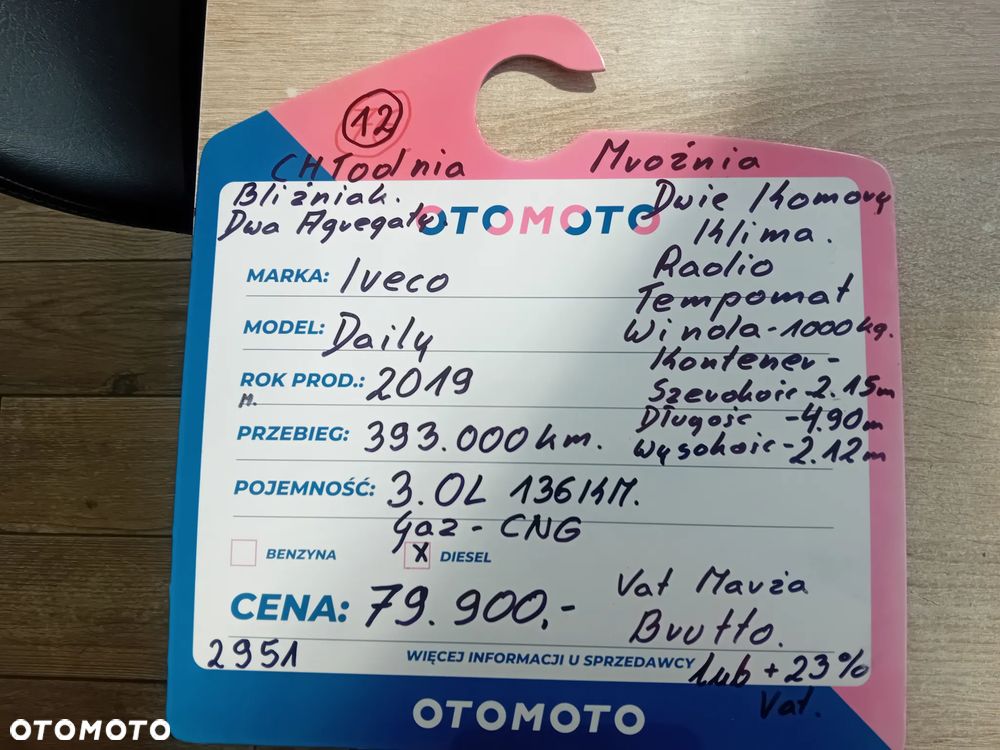 12
CHŁodnia Mroźnia
Bliźniak. Dwie Komory
Dwa Agregaty. OTOMOTO
Klima.
MARKA: Iveco Radio
Tempomat
MODEL: Daily Winda-1000kg.
Kontener-
ROK PROD.: 2019 Szerokość-2.15m
M. Długość -4.90m
PRZEBIEG: 393.000km. Wysokość-2.12m
POJEMNOŚĆ: 3.0L 136KM.
Gaz-CNG
BENZYNA X DIESEL
CENA: 79.900,- Vat Marża
Brutto.
2951 WIĘCEJ INFORMACJI U SPRZEDAWCY lub +23%
Vat.
OTOMOTO
OTOMOTO